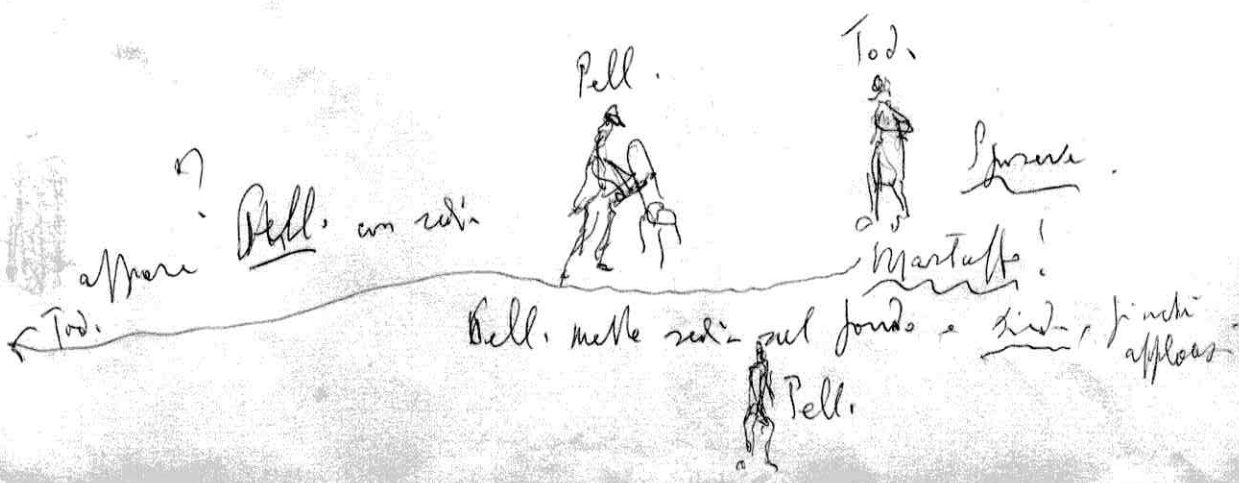 Pell.
Tod.
?
appare Pell. con sedia
Martuffo!
Tod.
Pell. mette sedia sul fondo e siede, finché
applaus
Pell.